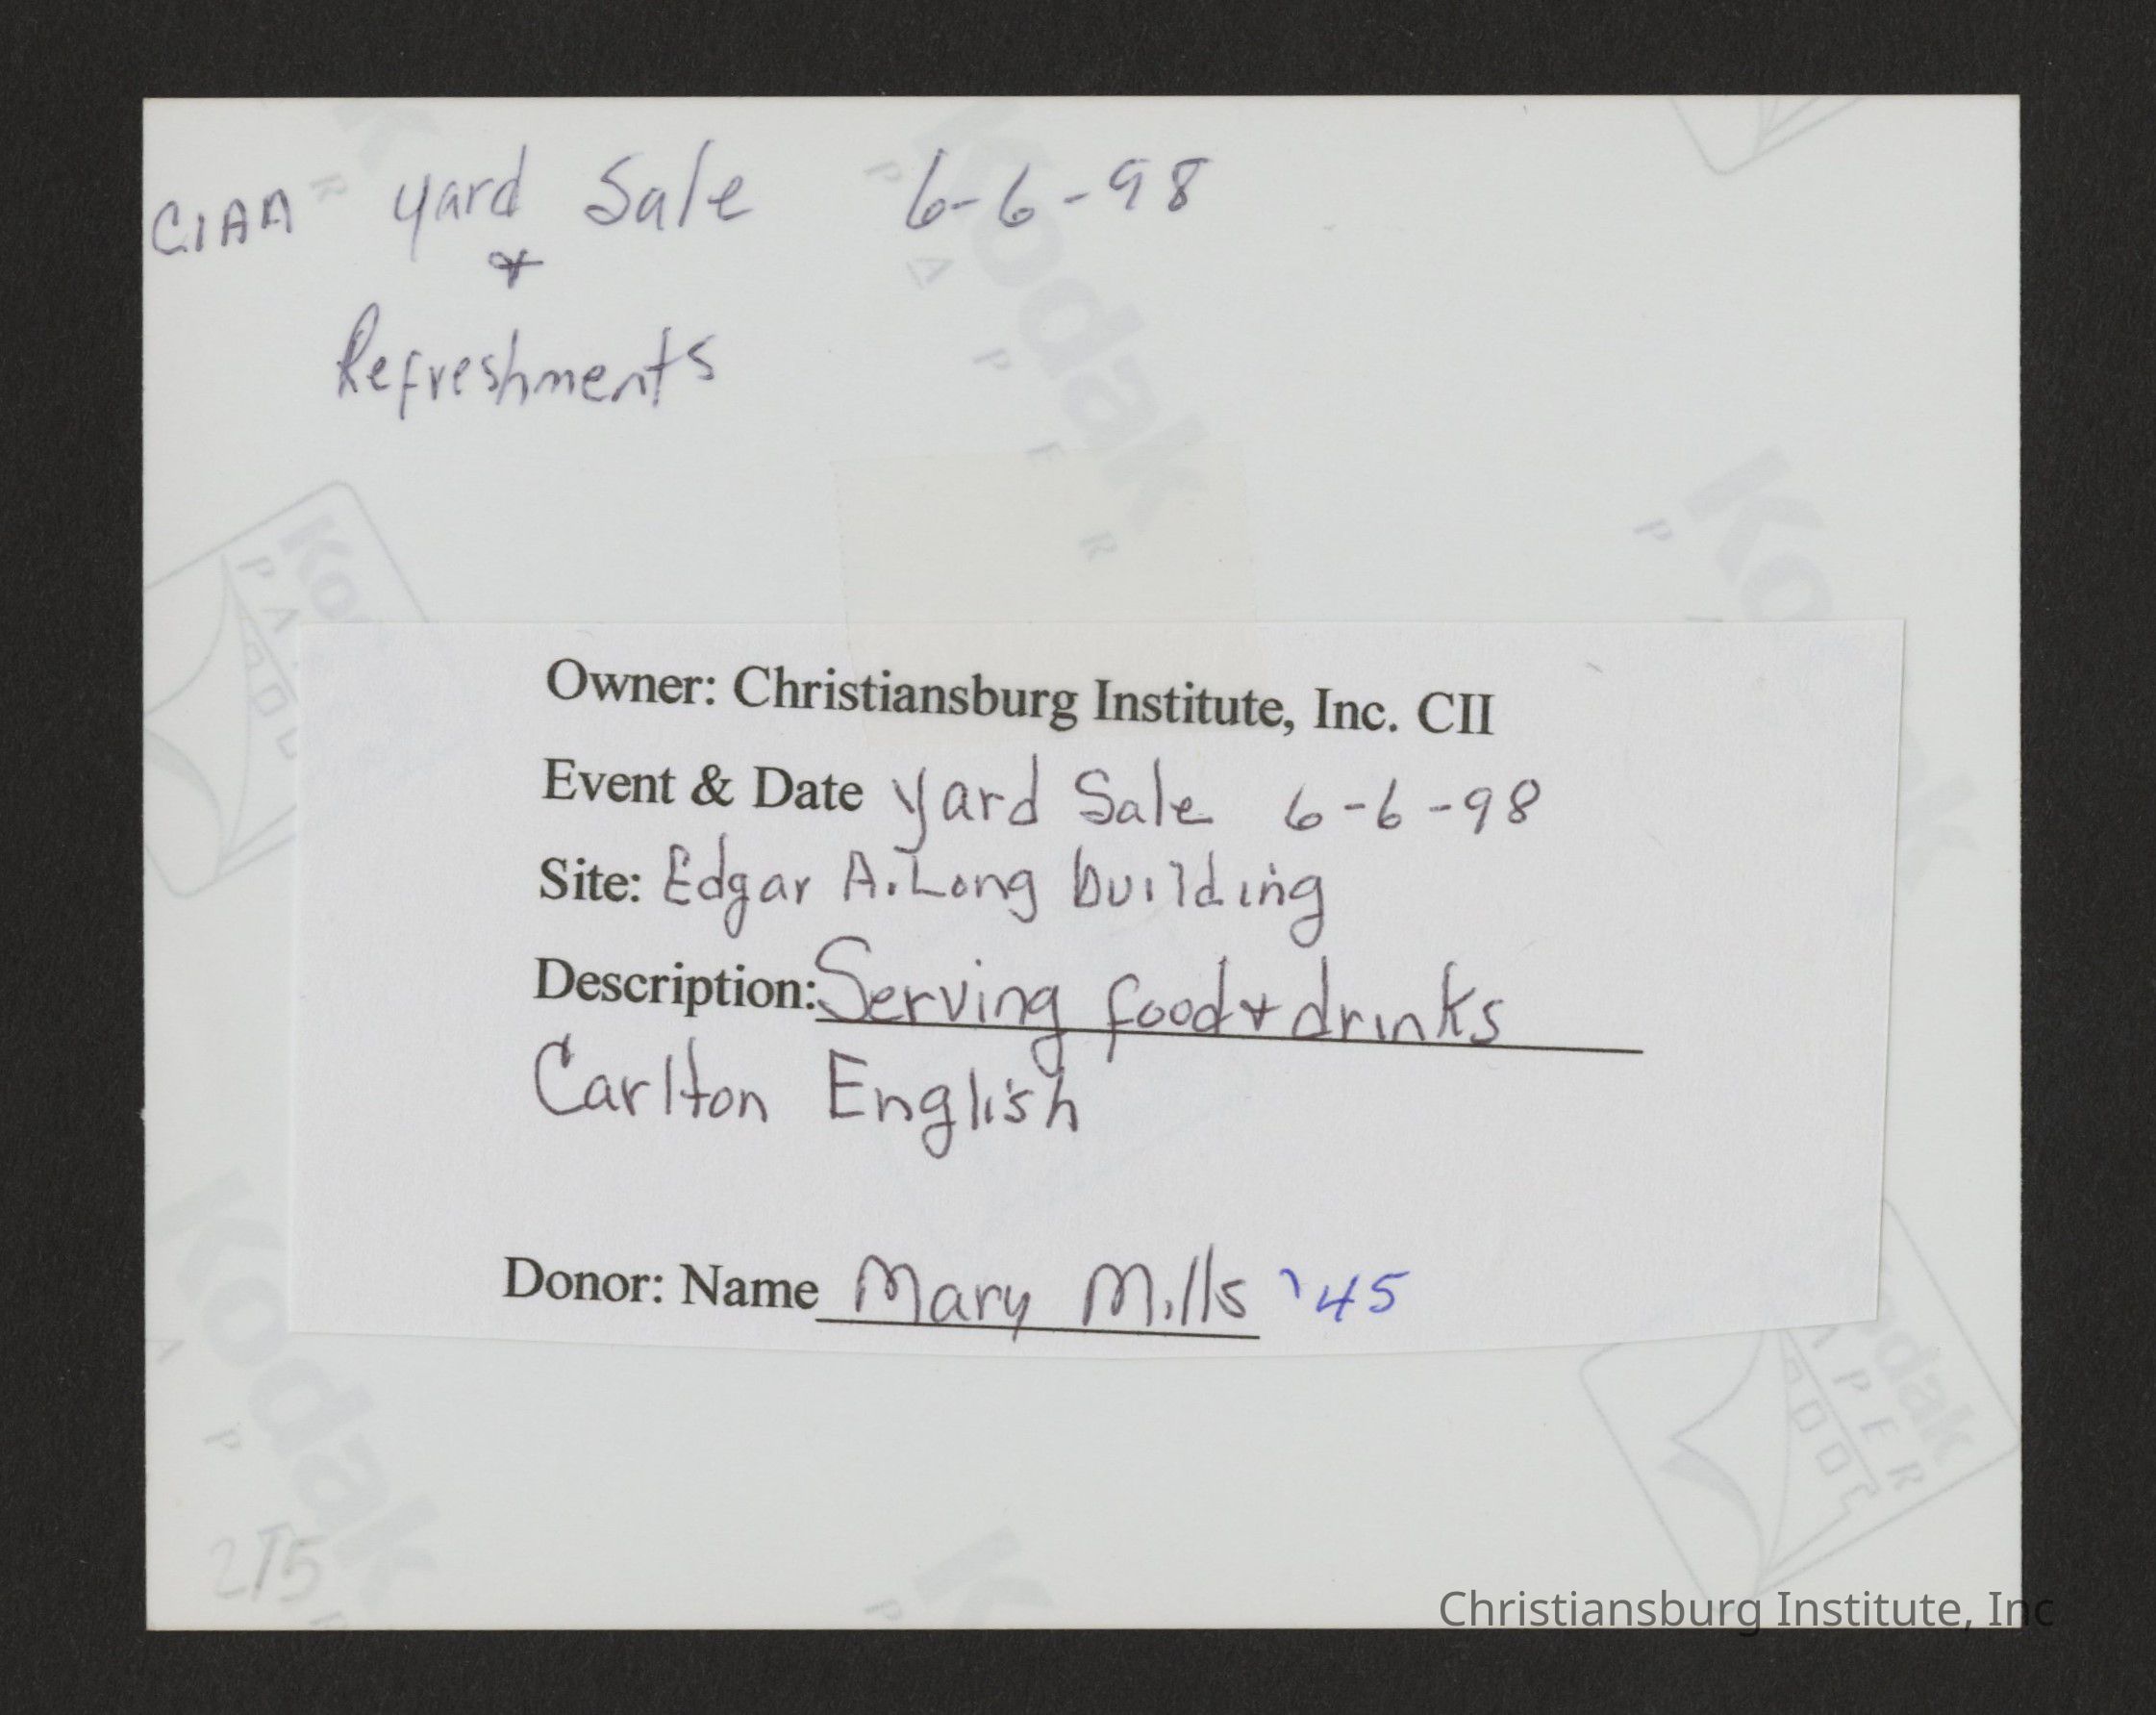 CIAA yard Sale 6-6-98
&
Refreshments
Owner: Christiansburg Institute, Inc. CII
Event & Date Yard Sale 6-6-98
Site: Edgar A. Long building
Description: Serving food & drinks
Carlton English
Donor: Name Mary Mills '45
215
Christiansburg Institute, Inc